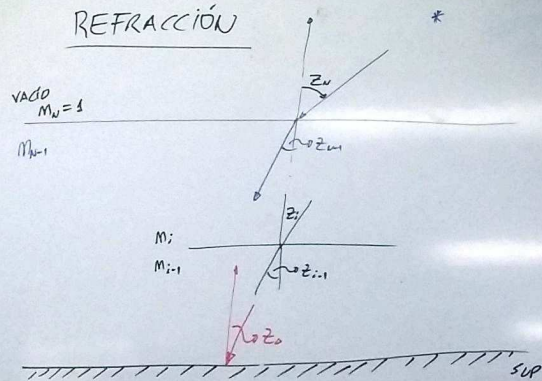 REFRACCIÓN
*
Z_N
VACÍO
M_N = 1
M_N-1
Z_N-1
Z_i
M_i
M_i-1
Z_i-1
Z_0
SUP